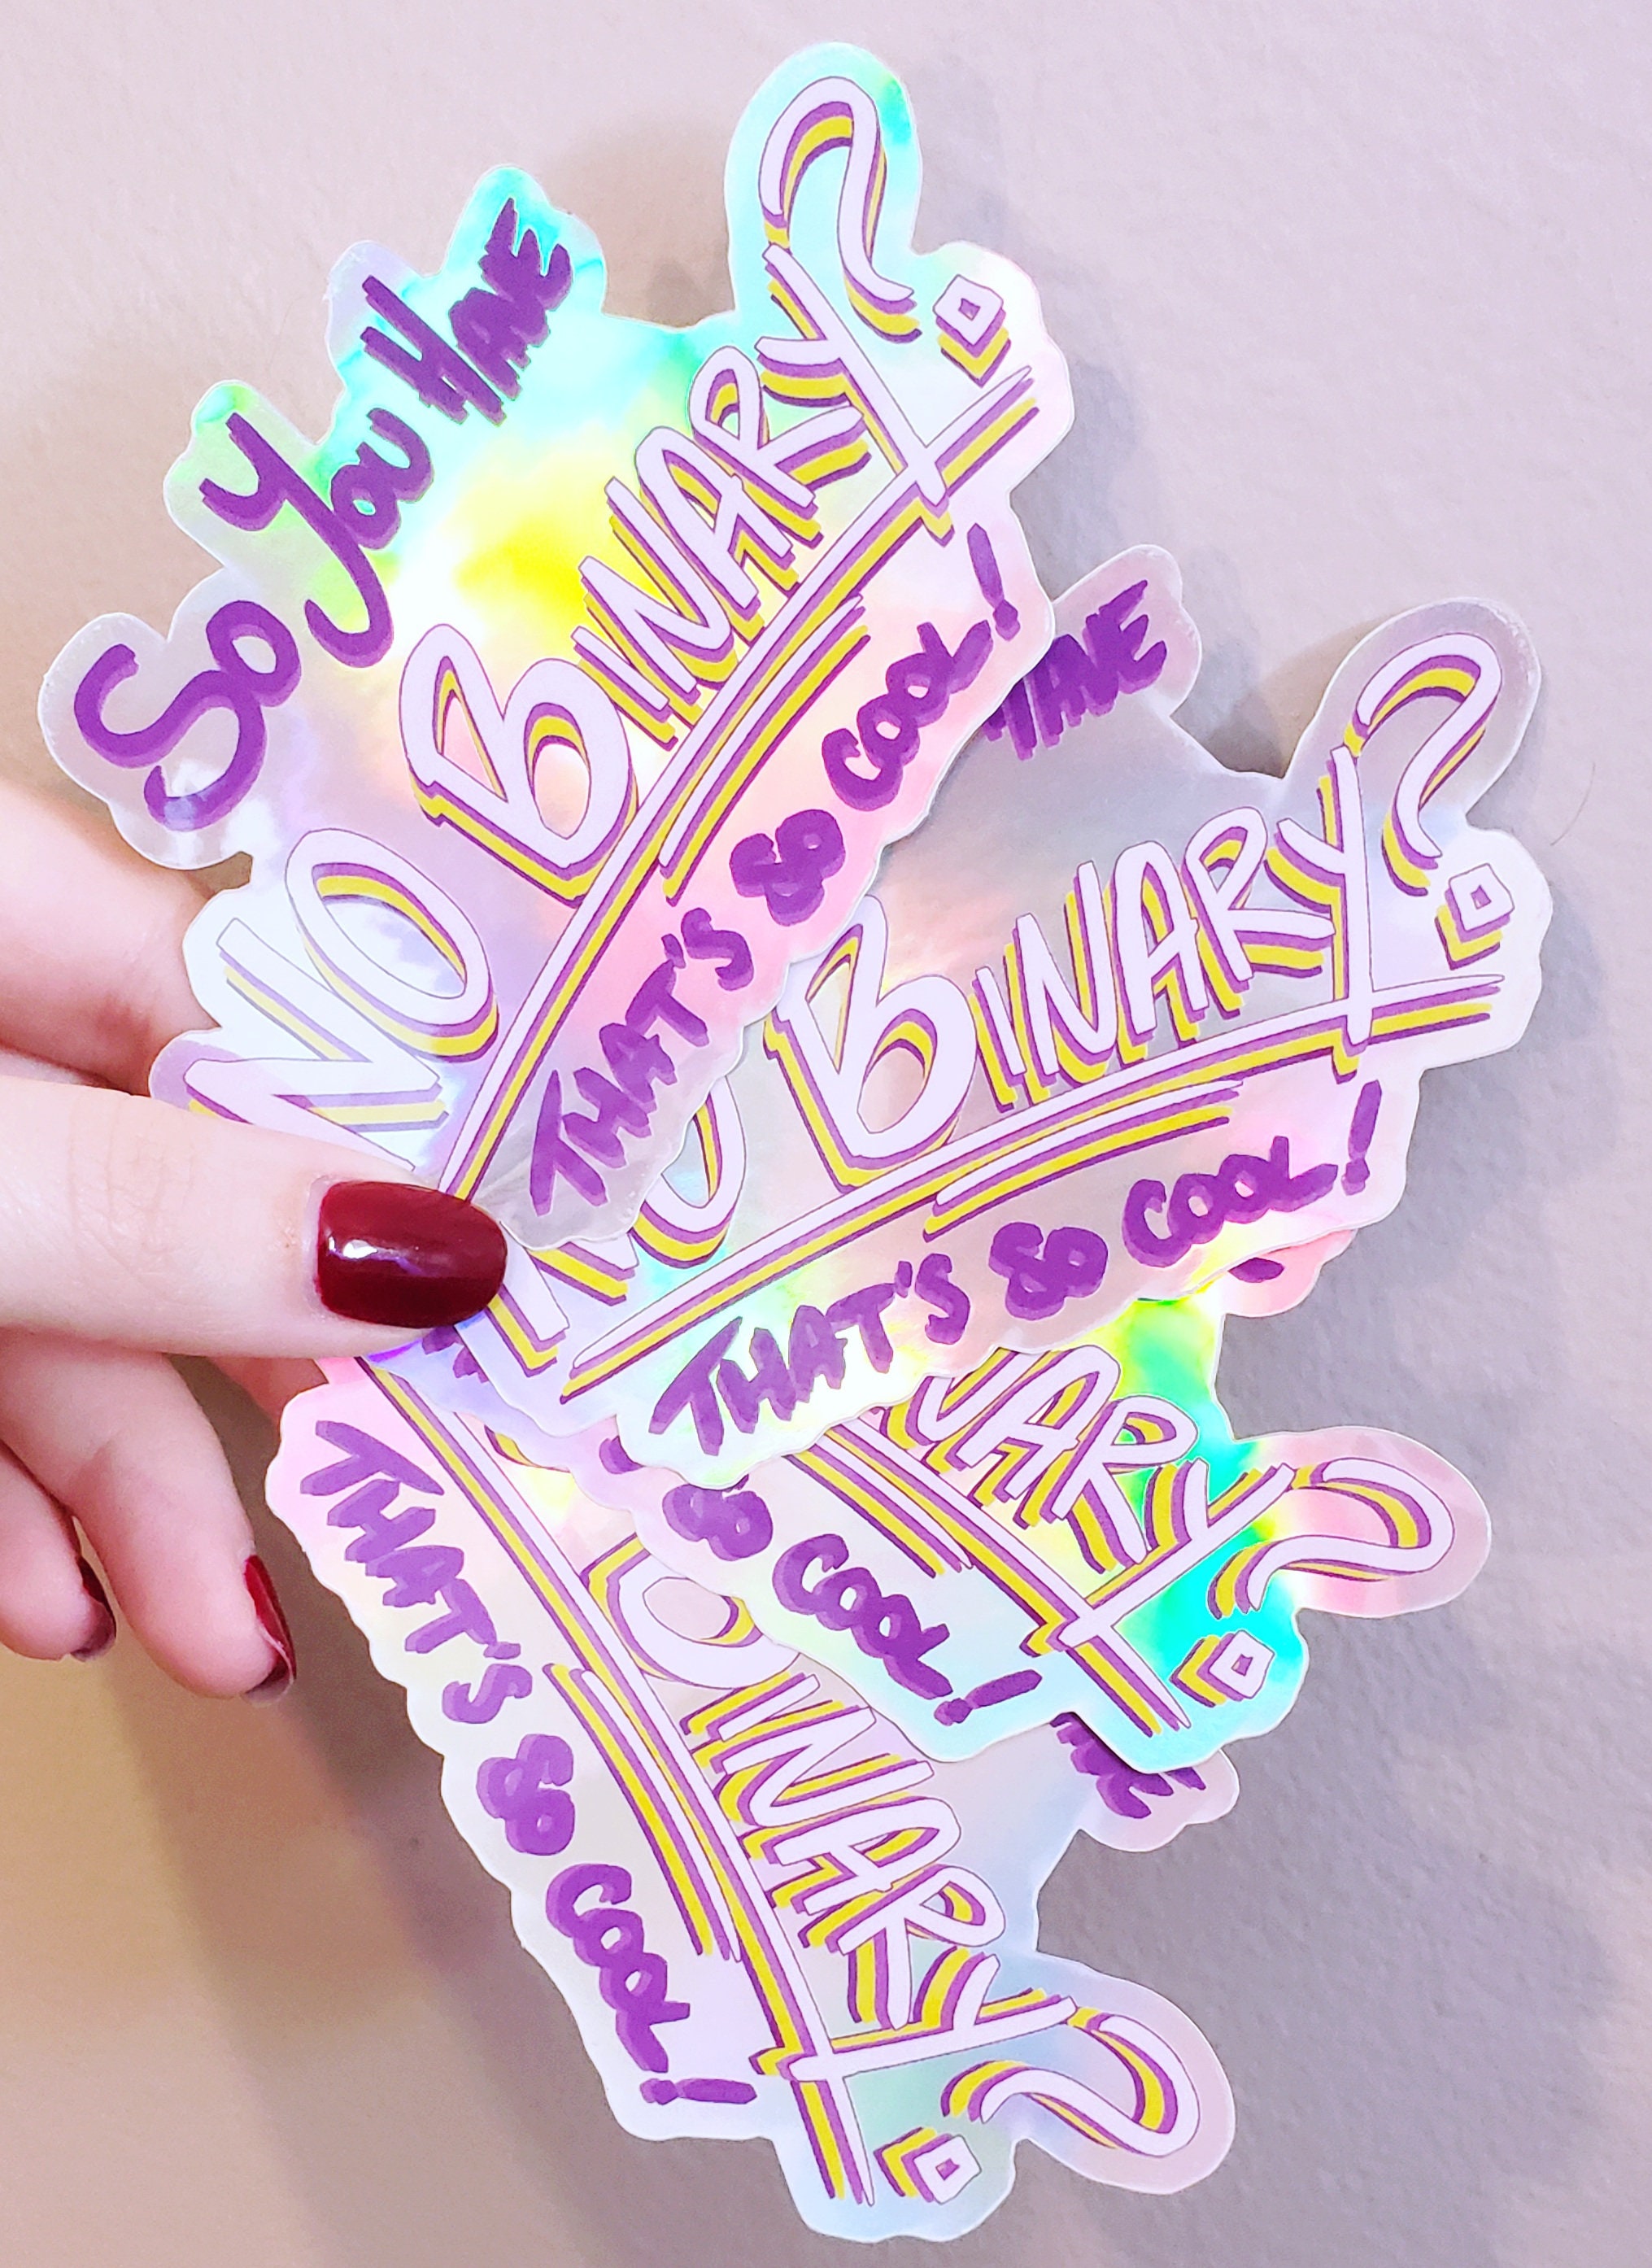 So You HAVE
NO BINARY?
THAT'S SO COOL!
HAVE
NO BINARY?
THAT'S SO COOL!
NARY?
SO COOL!
VE
O INARY?
THAT'S SO COOL!